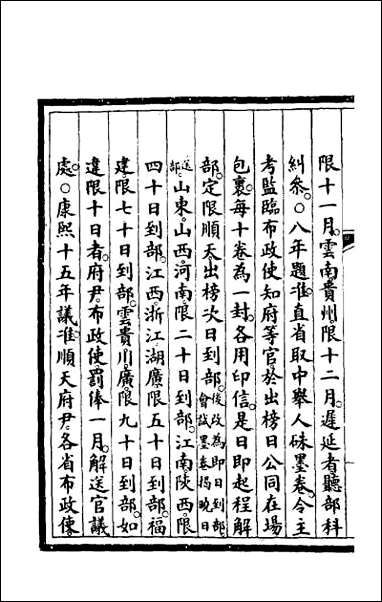 限十一月雲南貴州限十二月遲延者聽部科
糾叅○八年題准直省取中舉人硃墨卷令主
考監臨布政使知府等官於出榜日公同在場
包裹每十卷為一封各用印信是日即起程解
部定限順天出榜次日到部後改為即日到部會試墨卷揭曉日
送部山東山西河南限二十日到部江南陝西限
四十日到部江西浙江湖廣限五十日到部福
建限七十日到部雲貴川廣限九十日到部如
違限十日者府尹布政使罰俸一月解送官議
處○康熙十五年議准順天府尹各省布政使